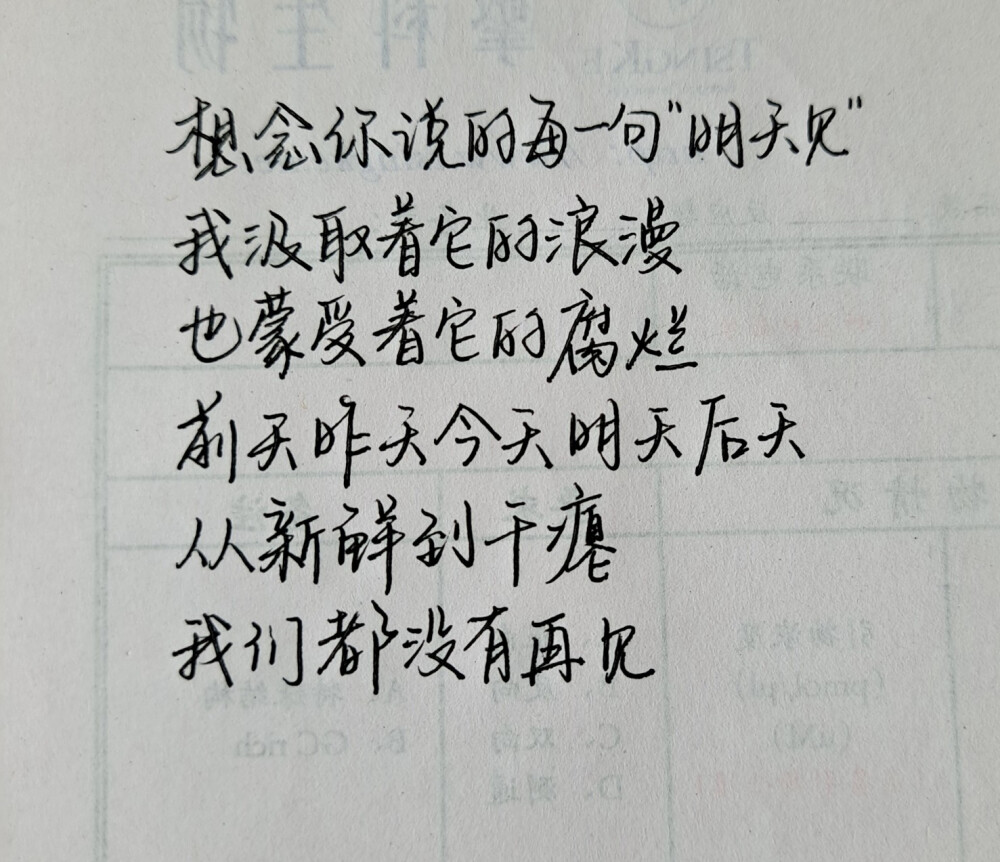 想念你说的每一句"明天见"
我汲取着它的浪漫
也蒙受着它的腐烂
前天昨天今天明天后天
从新鲜到干瘪
我们都没有再见